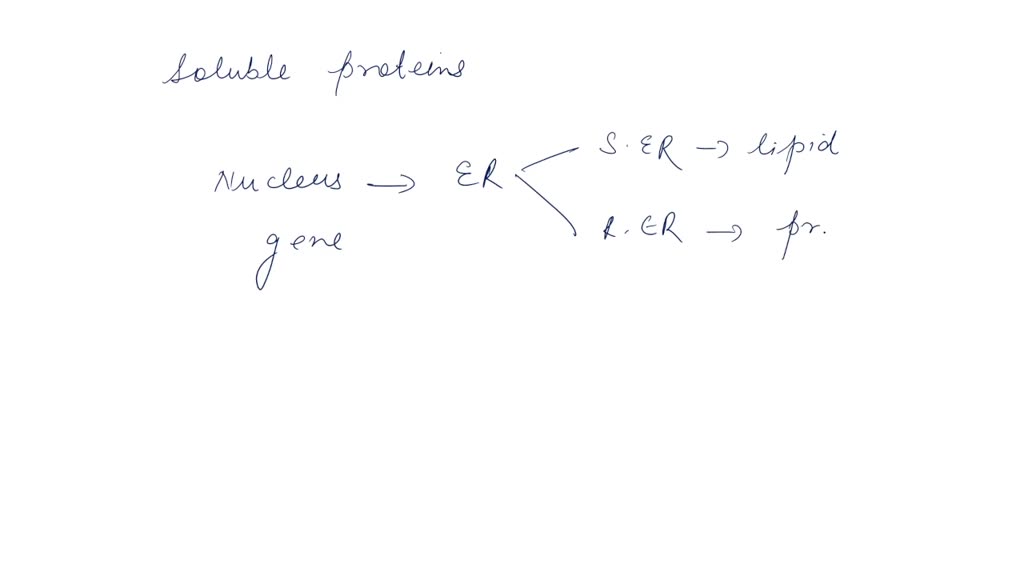 Soluble proteins
S.ER → lipid
Nucleus → ER
R.ER → pr.
gene